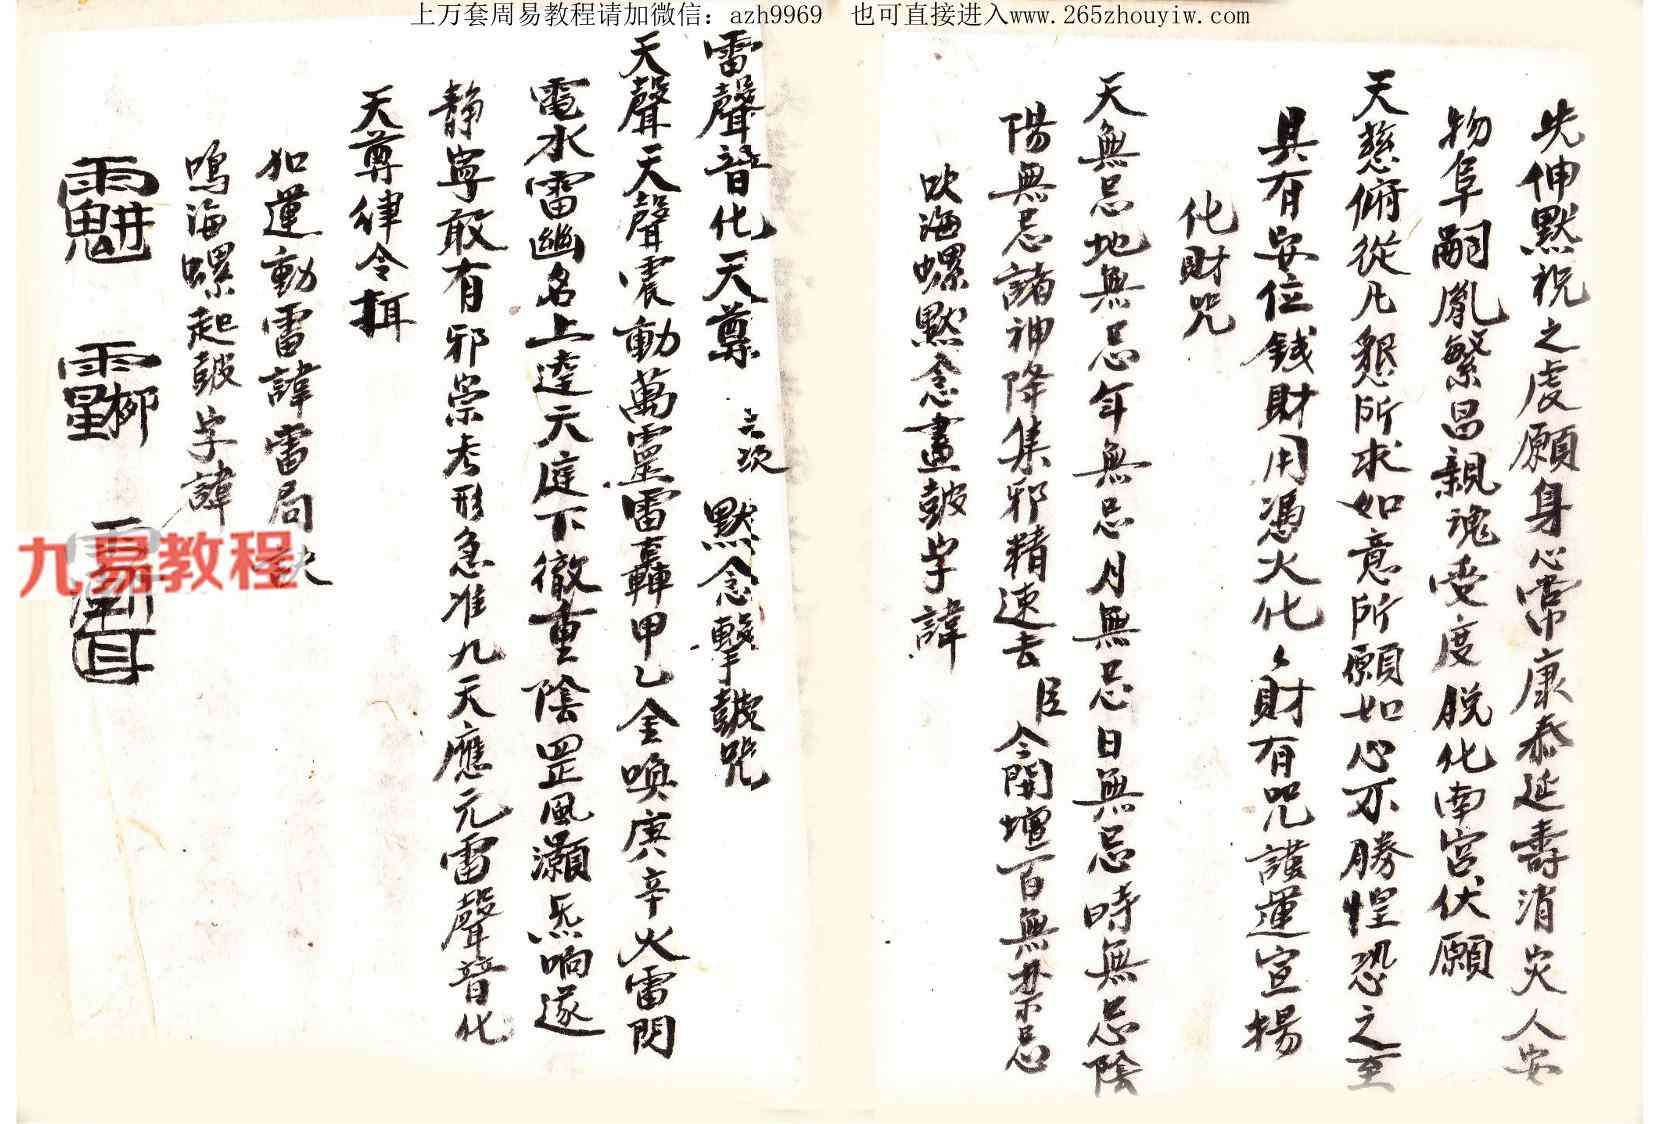 上万套周易教程请加微信：azh9969 也可直接进入www.265zhouyiw.com
先伸默祝之虔願身心常康泰延壽消灾人安
物阜嗣胤繁昌親魂受度脱化南宮伏願
天慈俯從凡懇所求如意所願如心不勝惶恐之至
具有安位錢財用憑火化財有咒護運宣揚
化財咒
天無忌地無忌年無忌月無忌日無忌時無忌陰
陽無忌諸神降集邪精速去 臣 今開壇百無禁忌
吹海螺默念畫鼓字諱
雷聲普化天尊 默念擊鼓咒
天聲天聲震動萬靈雷轟甲乙金喚庚辛火雷閃
電水雷幽名上達天庭下徹重陰罡風灝炁响遂
静寧敢有邪祟考形急准九天應元雷聲普化
天尊律令
如運動雷諱雷局訣
鳴海螺起鼓字諱
九易教程